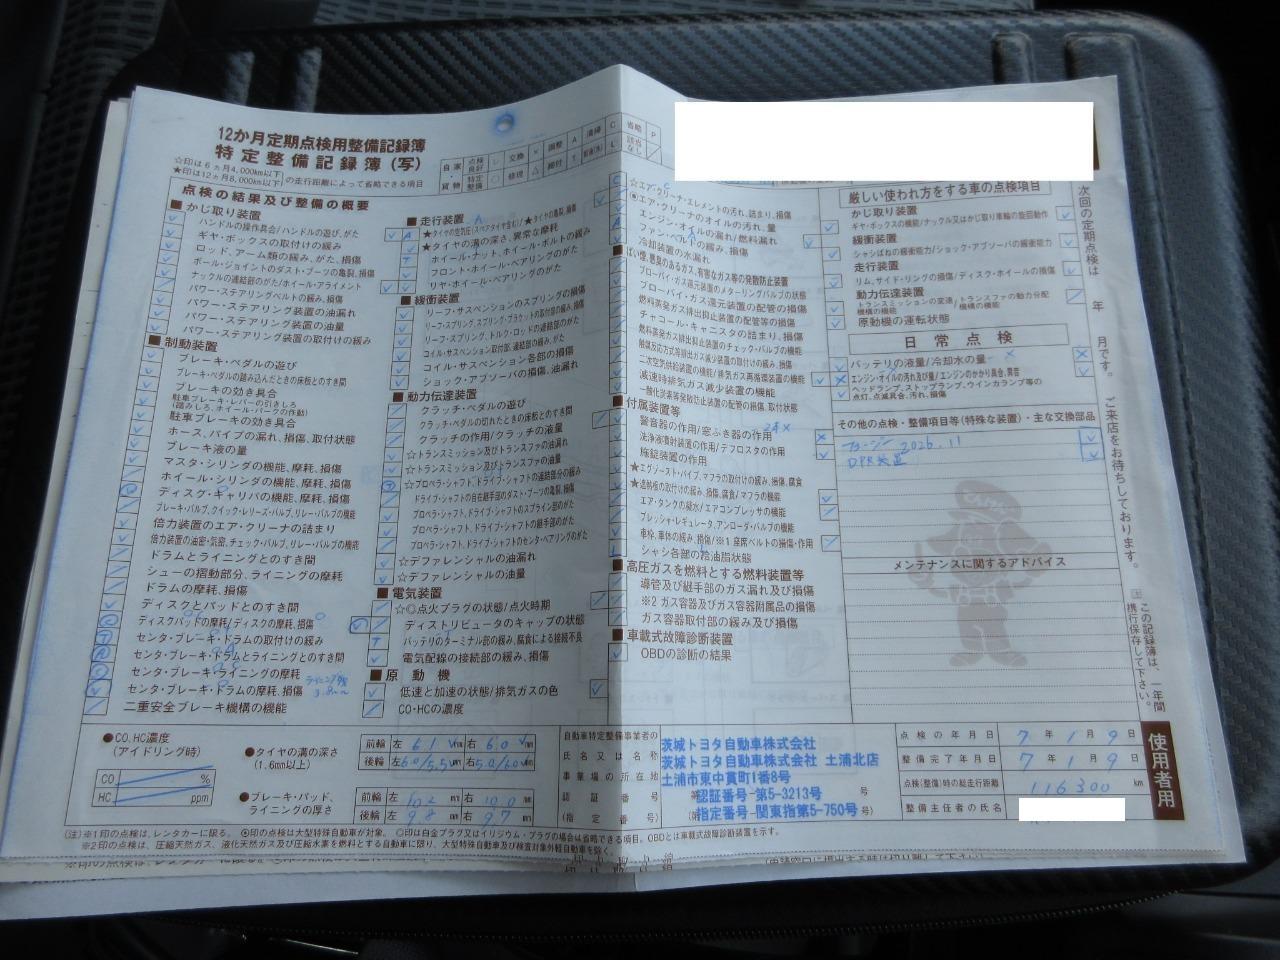 12か月定期点検用整備記録簿
特定整備記録簿(写)
☆印は6ヵ月4,000km以下
★印は12ヵ月8,000km以下 の走行距離によって省略できる項目
点検の結果及び整備の概要
■かじ取り装置
ハンドルの操作具合/ハンドルの遊び、がた
ギヤ・ボックスの取付けの緩み
ロッド、アーム類の緩み、がた、損傷
ボール・ジョイントのダスト・ブーツの亀裂、損傷
ナックルの連結部のがた/ホイール・アライメント
パワー・ステアリングベルトの緩み、損傷
パワー・ステアリング装置の油漏れ
パワー・ステアリング装置の油量
パワー・ステアリング装置の取付けの緩み
■制動装置
ブレーキ・ペダルの遊び
ブレーキ・ペダルの踏み込んだときの床板とのすき間
ブレーキの効き具合
駐車ブレーキ・レバーの引きしろ
(踏みしろ、ホイール・パークの作動)
駐車ブレーキの効き具合
ホース、パイプの漏れ、損傷、取付状態
ブレーキ液の量
マスタ・シリンダの機能、摩耗、損傷
ホイール・シリンダの機能、摩耗、損傷
ディスク・キャリパの機能、摩耗、損傷
ブレーキ・バルブ、クイック・レリーズ・バルブ、リレー・バルブの機能
倍力装置のエア・クリーナの詰まり
倍力装置の油密・気密、チェック・バルブ、リレー・バルブの機能
ドラムとライニングとのすき間
シューの摺動部分、ライニングの摩耗
ドラムの摩耗、損傷
ディスクとパッドとのすき間
ディスクパッドの摩耗/ディスクの摩耗、損傷
センタ・ブレーキ・ドラムの取付けの緩み
センタ・ブレーキ・ドラムとライニングとのすき間
センタ・ブレーキ・ライニングの摩耗
センタ・ブレーキ・ドラムの摩耗、損傷
二重安全ブレーキ機構の機能
■走行装置
★タイヤの溝の深さ、異常な摩耗
ホイール・ナット、ホイール・ボルトの緩み
フロント・ホイール・ベアリングのがた
リヤ・ホイール・ベアリングのがた
■緩衝装置
リーフ・サスペンションのスプリングの損傷
リーフ・スプリング、スプリング・ブラケットの取付部の緩み、損傷
リーフ・スプリング、トルク・ロッドの連結部のがた
コイル・サスペンション取付部、連結部の緩み、がた
コイル・サスペンション各部の損傷
ショック・アブソーバの損傷、油漏れ
■動力伝達装置
クラッチ・ペダルの遊び
クラッチ・ペダルの切れたときの床板とのすき間
クラッチの作用/クラッチの液量
☆トランスミッション及びトランスファの油漏れ
☆トランスミッション及びトランスファの油量
☆プロペラ・シャフト、ドライブ・シャフトの連結部の緩み
ドライブ・シャフトの自在継手部のダスト・ブーツの亀裂、損傷
プロペラ・シャフト、ドライブ・シャフトのスプライン部のがた
プロペラ・シャフト、ドライブ・シャフトの継手部のがた
プロペラ・シャフト、ドライブ・シャフトのセンタ・ベアリングのがた
☆デファレンシャルの油漏れ
☆デファレンシャルの油量
■電気装置
☆◎点火プラグの状態/点火時期
ディストリビュータのキャップの状態
バッテリのターミナル部の緩み、腐食による接続不良
電気配線の接続部の緩み、損傷
■原動機
低速と加速の状態/排気ガスの色
CO・HCの濃度
☆エア・クリーナ・エレメントの汚れ、詰まり、損傷
エア・クリーナのオイルの汚れ、量
エンジン・オイルの漏れ/燃料漏れ
ファン・ベルトの緩み、損傷
冷却装置の水漏れ
■ばい煙、悪臭のあるガス、有害なガス等の発散防止装置
ブローバイ・ガス還元装置のメターリングバルブの状態
ブローバイ・ガス還元装置の配管の損傷
燃料蒸発ガス排出抑止装置の配管等の損傷
チャコール・キャニスタの詰まり、損傷
燃料蒸発ガス排出抑止装置のチェック・バルブの機能
触媒反応方式等排出ガス減少装置の取付けの緩み、損傷
二次空気供給装置の機能/排気ガス再循環装置の機能
減速時排気ガス減少装置の機能
一酸化炭素等発散防止装置の配管の損傷、取付状態
■付属装置等
警音器の作用/窓ふき器の作用
洗浄液噴射装置の作用/デフロスタの作用
施錠装置の作用
★エグゾースト・パイプ、マフラの取付けの緩み、損傷、腐食
★遮熱板の取付けの緩み、損傷、腐食/マフラの機能
エア・タンクの凝水/エアコンプレッサの機能
プレッシャ・レギュレータ、アンローダ・バルブの機能
車枠、車体の緩み、損傷/※1 座席ベルトの損傷・作用
シャシ各部の給油脂状態
■高圧ガスを燃料とする燃料装置等
導管及び継手部のガス漏れ及び損傷
※2 ガス容器及びガス容器附属品の損傷
ガス容器取付部の緩み及び損傷
■車載式故障診断装置
OBDの診断の結果
厳しい使われ方をする車の点検項目
かじ取り装置
ギヤ・ボックスの機能/ナックル又はかじ取り車輪の旋回動作
緩衝装置
シャシばねの緩衝能力/ショック・アブソーバの緩衝能力
走行装置
リム、サイド・リングの損傷/ディスク・ホイールの損傷
動力伝達装置
トランスミッションの変速機構の機能/トランスファの動力分配機構の機能
原動機の運転状態
日常点検
バッテリの液量/冷却水の量
エンジン・オイルの汚れ及び量/エンジンのかかり具合、異音
ヘッドランプ、ストップランプ、ウインカランプ等の
点灯、点滅具合、汚れ、損傷
その他の点検・整備項目等(特殊な装置)・主な交換部品
2026.11
DPR装置
メンテナンスに関するアドバイス
次回の定期点検は 年 月です。 ご来店をお待ちしております。
この記録簿は、一年間
携行保存して下さい。
使用者用
●CO、HC濃度
(アイドリング時)
CO %
HC ppm
●タイヤの溝の深さ
(1.6mm以上)
前輪 左 6.1 mm 右 6.0 mm
後輪 左 6.0/5.5 mm 右 5.0/6.0 mm
●ブレーキ・パッド、
ライニングの厚さ
前輪 左 10.2 mm 右 10.0 mm
後輪 左 9.8 mm 右 9.7 mm
自動車特定整備事業者の
氏名又は名称
事業場の所在地
認証番号
(指定番号)
茨城トヨタ自動車株式会社
茨城トヨタ自動車株式会社 土浦北店
土浦市東中貫町1番8号
認証番号-第5-3213号
指定番号-関東指第5-750号
点検の年月日 7年1月9日
整備完了年月日 7年1月9日
点検(整備)時の総走行距離 116300 km
整備主任者の氏名
(注)※1印の点検は、レンタカーに限る。 ⦿印の点検は大型特殊自動車が対象。 ◎印は白金プラグ又はイリジウム・プラグの場合は省略できる項目。OBDとは車載式故障診断装置を示す。
※2印の点検は、圧縮天然ガス、液化天然ガス及び圧縮水素を燃料とする自動車に限り、大型特殊自動車及び検査対象外軽自動車を除く。